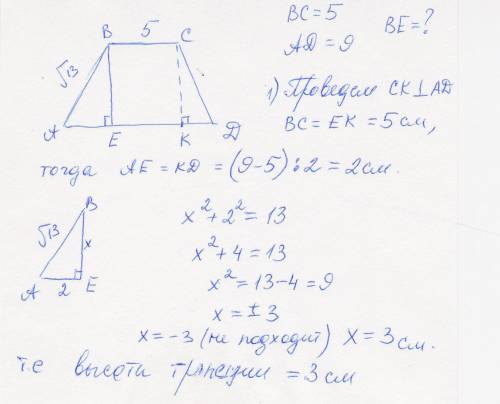 BC = 5
AD = 9
BE = ?
B 5 C
√13
A E K D
1) Проведем CK ⊥ AD
BC = EK = 5 см,
тогда AE = KD = (9-5) : 2 = 2 см.
B
√13 x
A 2 E
x² + 2² = 13
x² + 4 = 13
x² = 13 - 4 = 9
x = ± 3
x = -3 (не подходит) x = 3 см.
т.е высота трапеции = 3 см